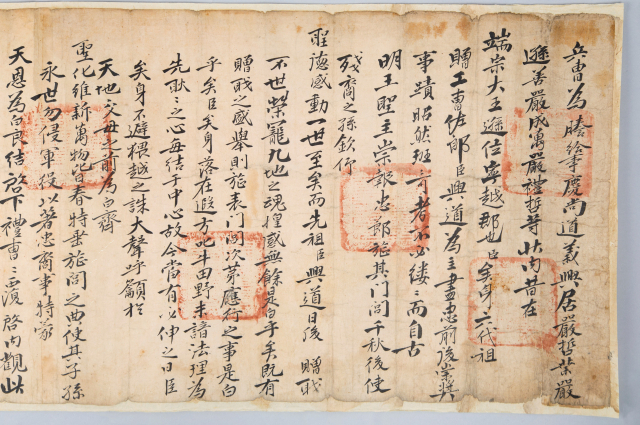 兵曹爲謄給事慶尙道義興居嚴哲業嚴
遜善嚴成萬嚴禮哲等狀內昔在
端宗大王遜位寧越郡也臣矣身六代祖
贈工曹佐郎臣興道爲主盡忠前後崇獎
事蹟昭然班班者不必縷縷而自古
明王聖主崇報忠節旌其門閭千秋後使
殘裔之孫欽仰
聖德感動一世至矣而先祖臣興道日後 贈戝
不世榮寵九地之魂惶感無餘是白乎矣旣有
贈戝之盛擧則旌表門閭次第應行之事是白
乎矣臣矣身落在遐方北斗田野未諳法理爲
先耿耿之心每結于中心故今當有必伸之日臣
矣身不避猥越之誅大聲呼籲於
天地父母之前爲白齊
聖化維新萬物皆春特垂旌閭之典使其子孫
永世勿侵軍役以著忠裔事特蒙
天恩爲白良結啓下禮曹禮曹覆啓內觀此